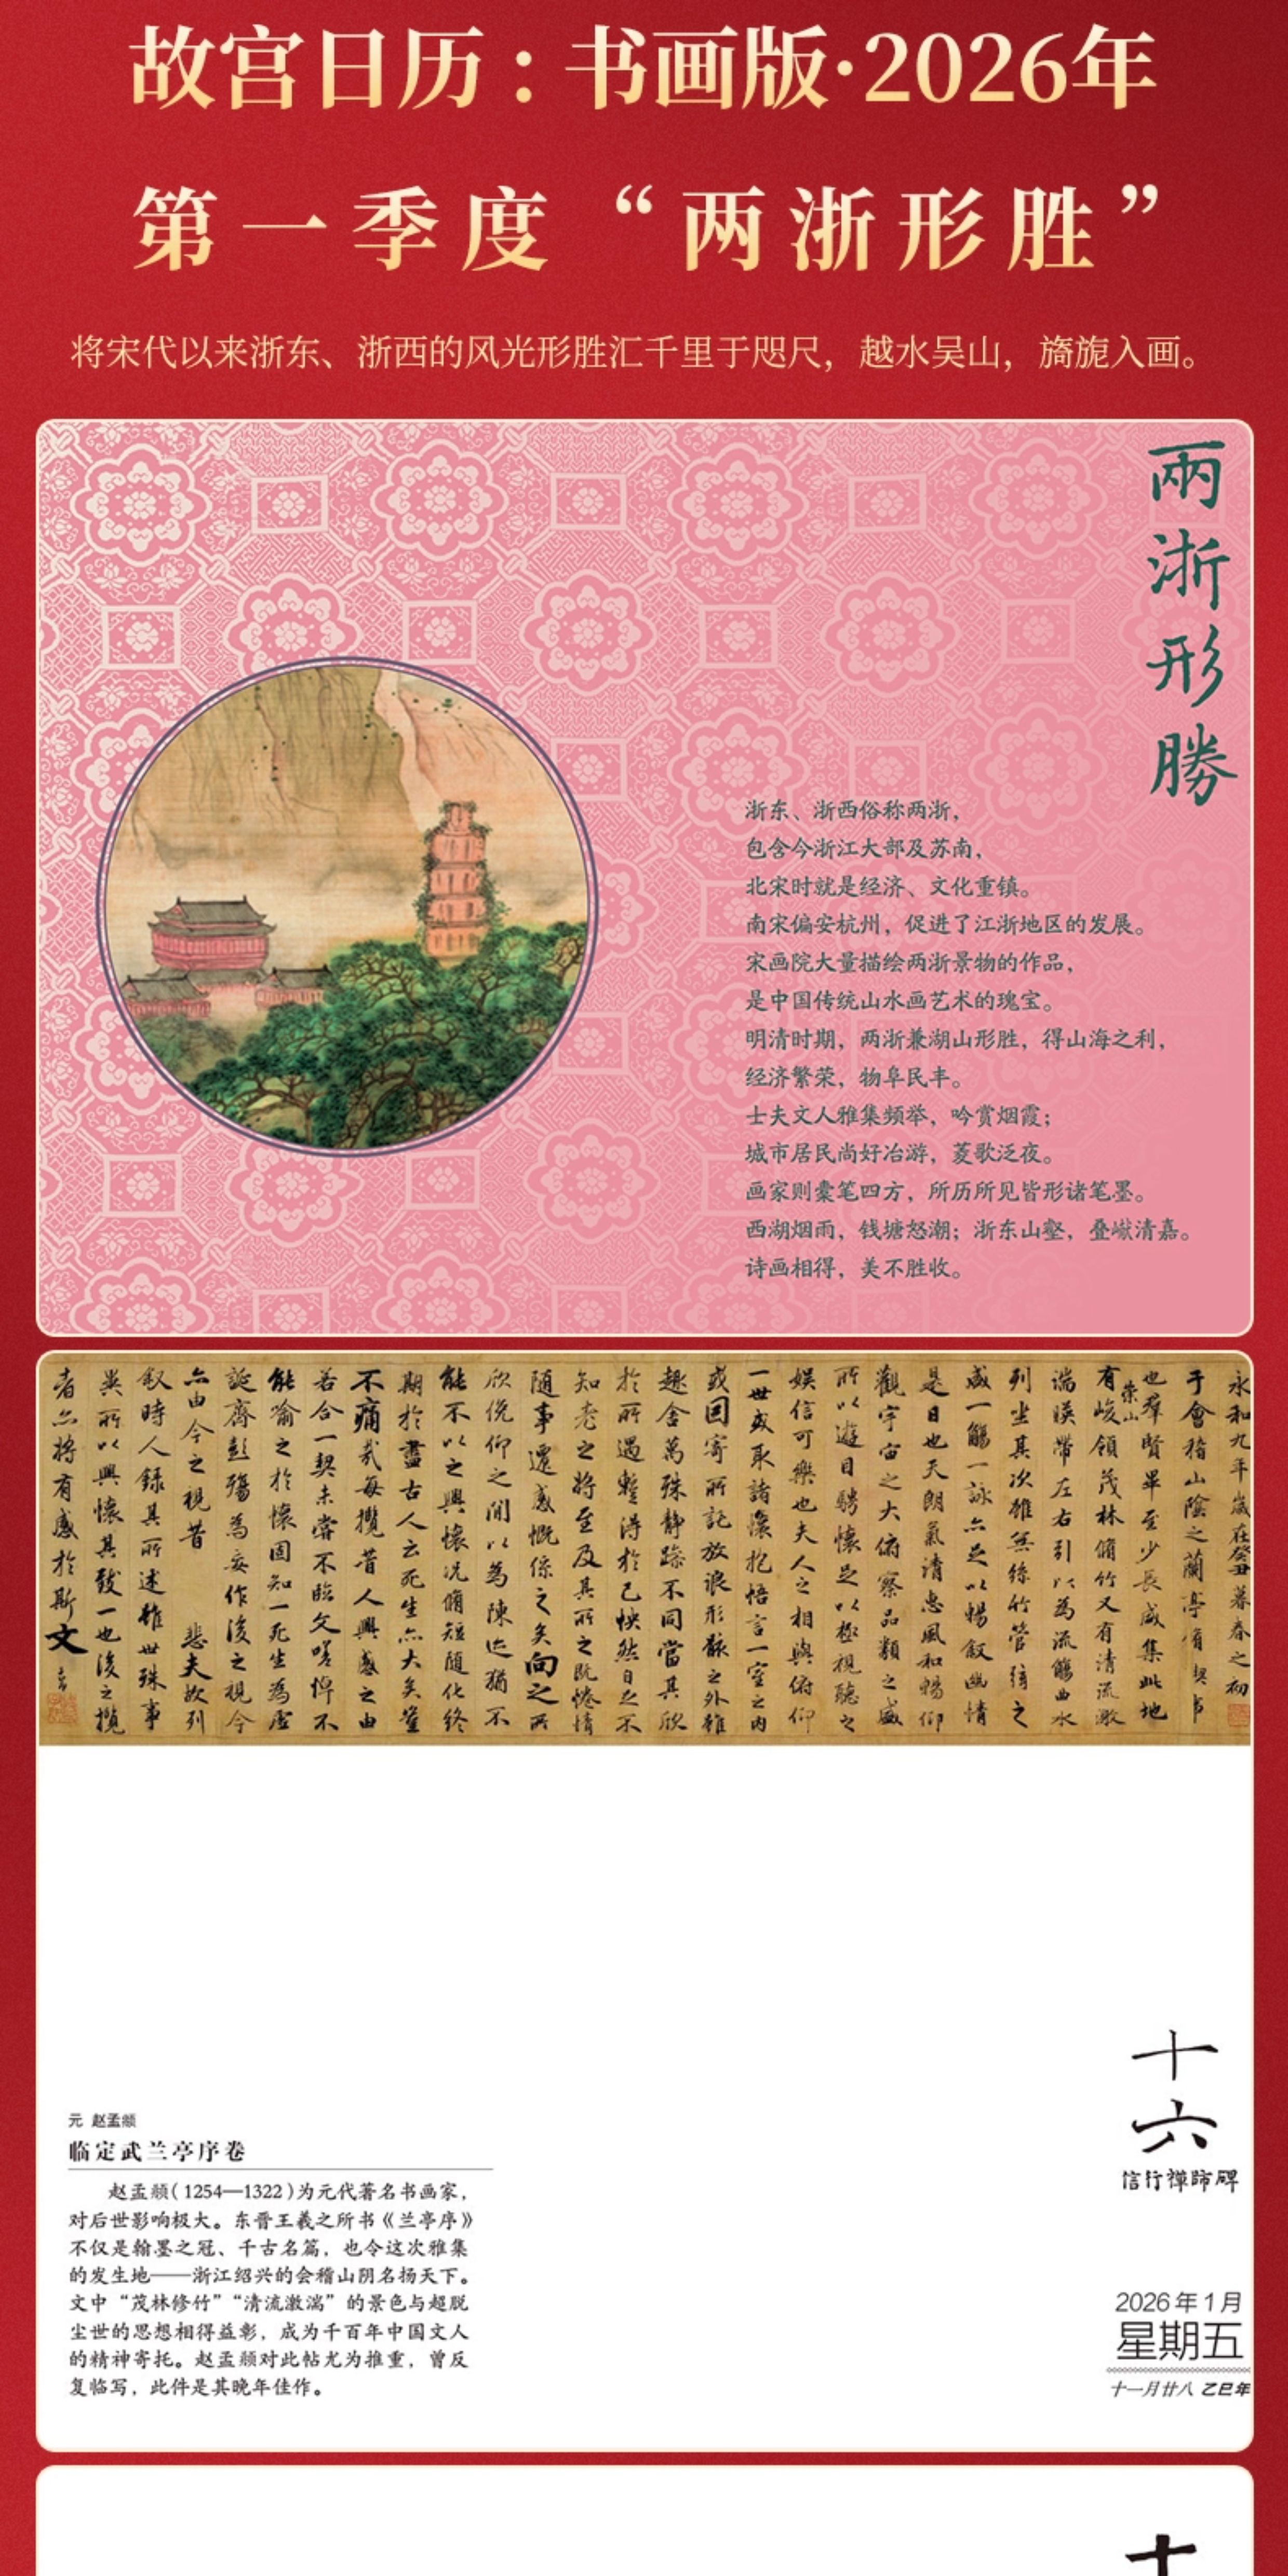 故宫日历：书画版·2026年
第一季度“两浙形胜”
将宋代以来浙东、浙西的风光形胜汇千里于咫尺，越水吴山，旖旎入画。
兩浙形勝
浙东、浙西俗称两浙，
包含今浙江大部及苏南，
北宋时就是经济、文化重镇。
南宋偏安杭州，促进了江浙地区的发展。
宋画院大量描绘两浙景物的作品，
是中国传统山水画艺术的瑰宝。
明清时期，两浙兼湖山形胜，得山海之利，
经济繁荣，物阜民丰。
士夫文人雅集频举，吟赏烟霞；
城市居民尚好冶游，菱歌泛夜。
画家则橐笔四方，所历所见皆形诸笔墨。
西湖烟雨，钱塘怒潮；浙东山壑，叠巘清嘉。
诗画相得，美不胜收。
永和九年歲在癸丑暮春之初
于會稽山陰之蘭亭脩禊事
也羣賢畢至少長咸集此地
有崇山峻領茂林脩竹又有清流激
湍暎帶左右引以為流觴曲水
列坐其次雖無絲竹管弦之
盛一觴一詠亦足以暢叙幽情
是日也天朗氣清惠風和暢仰
觀宇宙之大俯察品類之盛
所以遊目騁懷足以極視聽之
娱信可樂也夫人之相與俯仰
一世或取諸懷抱悟言一室之内
或因寄所託放浪形骸之外雖
趣舍萬殊靜躁不同當其欣
於所遇暫得於己怏然自足不
知老之將至及其所之既惓情
随事遷感慨係之矣向之所
欣俛仰之閒以為陳迹猶不
能不以之興懷况脩短隨化終
期於盡古人云死生亦大矣豈
不痛哉每攬昔人興感之由
若合一契未嘗不臨文嗟悼不
能喻之於懷固知一死生為虛
誕齊彭殤為妄作後之視今
亦由今之視昔悲夫故列
叙時人錄其所述雖世殊事
異所以興懷其致一也後之攬
者亦將有感於斯文
十六
信行禪師碑
元 赵孟頫
临定武兰亭序卷
赵孟頫（1254—1322）为元代著名书画家，
对后世影响极大。东晋王羲之所书《兰亭序》
不仅是翰墨之冠、千古名篇，也令这次雅集
的发生地——浙江绍兴的会稽山阴名扬天下。
文中“茂林修竹”“清流激湍”的景色与超脱
尘世的思想相得益彰，成为千百年中国文人
的精神寄托。赵孟頫对此帖尤为推重，曾反
复临写，此件是其晚年佳作。
2026年1月
星期五
十一月廿八 乙巳年